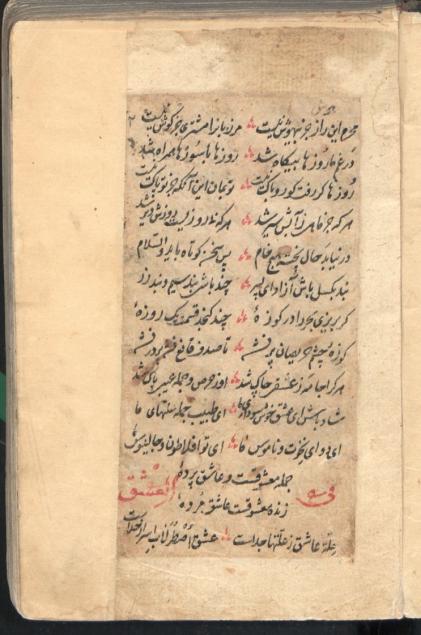 محرم این راز جز بیهوش نیست مرزبانرا مشتری جز کوش نیست
در غم ما روزها بیکاه شد روزها با سوزها همراه شد
روزها کر رفت کو رو باک نیست تو بمان این آنکه جز تو پاک نیست
هرکه جز ماهی ز آبش سیر شد هرکه بی روزیست روزش دیر شد
در نیابد حال پخته هیچ خام پس سخن کوتاه باید والسلام
بند بکسل باش آزاد ای پسر چند باشی بند سیم و بند زر
کر بریزی بحر را در کوزهٔ چند کنجد قسمت یک روزهٔ
کوزه چشم حریصان پر نشد تا صدف قانع نشد پر در نشد
هرکرا جامه ز عشقی چاک شد او ز حرص و جمله عیبی پاک شد
شاد باش ای عشق خوش سودای ما ای طبیب جمله علتهای ما
ای دوای نخوت و ناموس ما ای تو افلاطون و جالینوس ما
جمله معشوقست و عاشق پردهٔ
زنده معشوقست عاشق مردهٔ
فی العشق
علت عاشق ز علتها جداست عشق اصطرلاب اسرار خداست